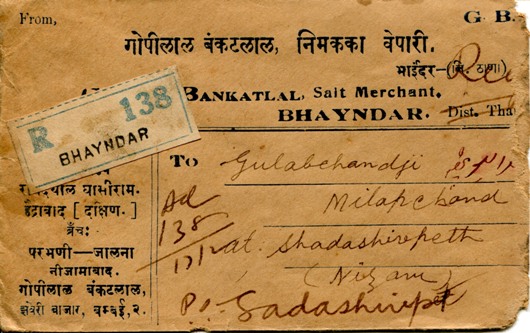 From,
G. B.
गोपीलाल बंकटलाल, निमकका वेपारी.
भाईंदर—(जि. ठाणा)
BANKATLAL, Salt Merchant,
BHAYNDAR. Dist. Tha
R 138
BHAYNDAR
To Gulabchandji
Milapchand
at. Shadashivpeth
(Nizam)
Po. Sadashivpet
Ad
138
घासीराम.
हैद्राबाद [दक्षिण.]
ब्रँच:
परभणी—जालना
नीजामाबाद.
गोपीलाल बंकटलाल,
झवेरी बाजार, बम्बई, २.